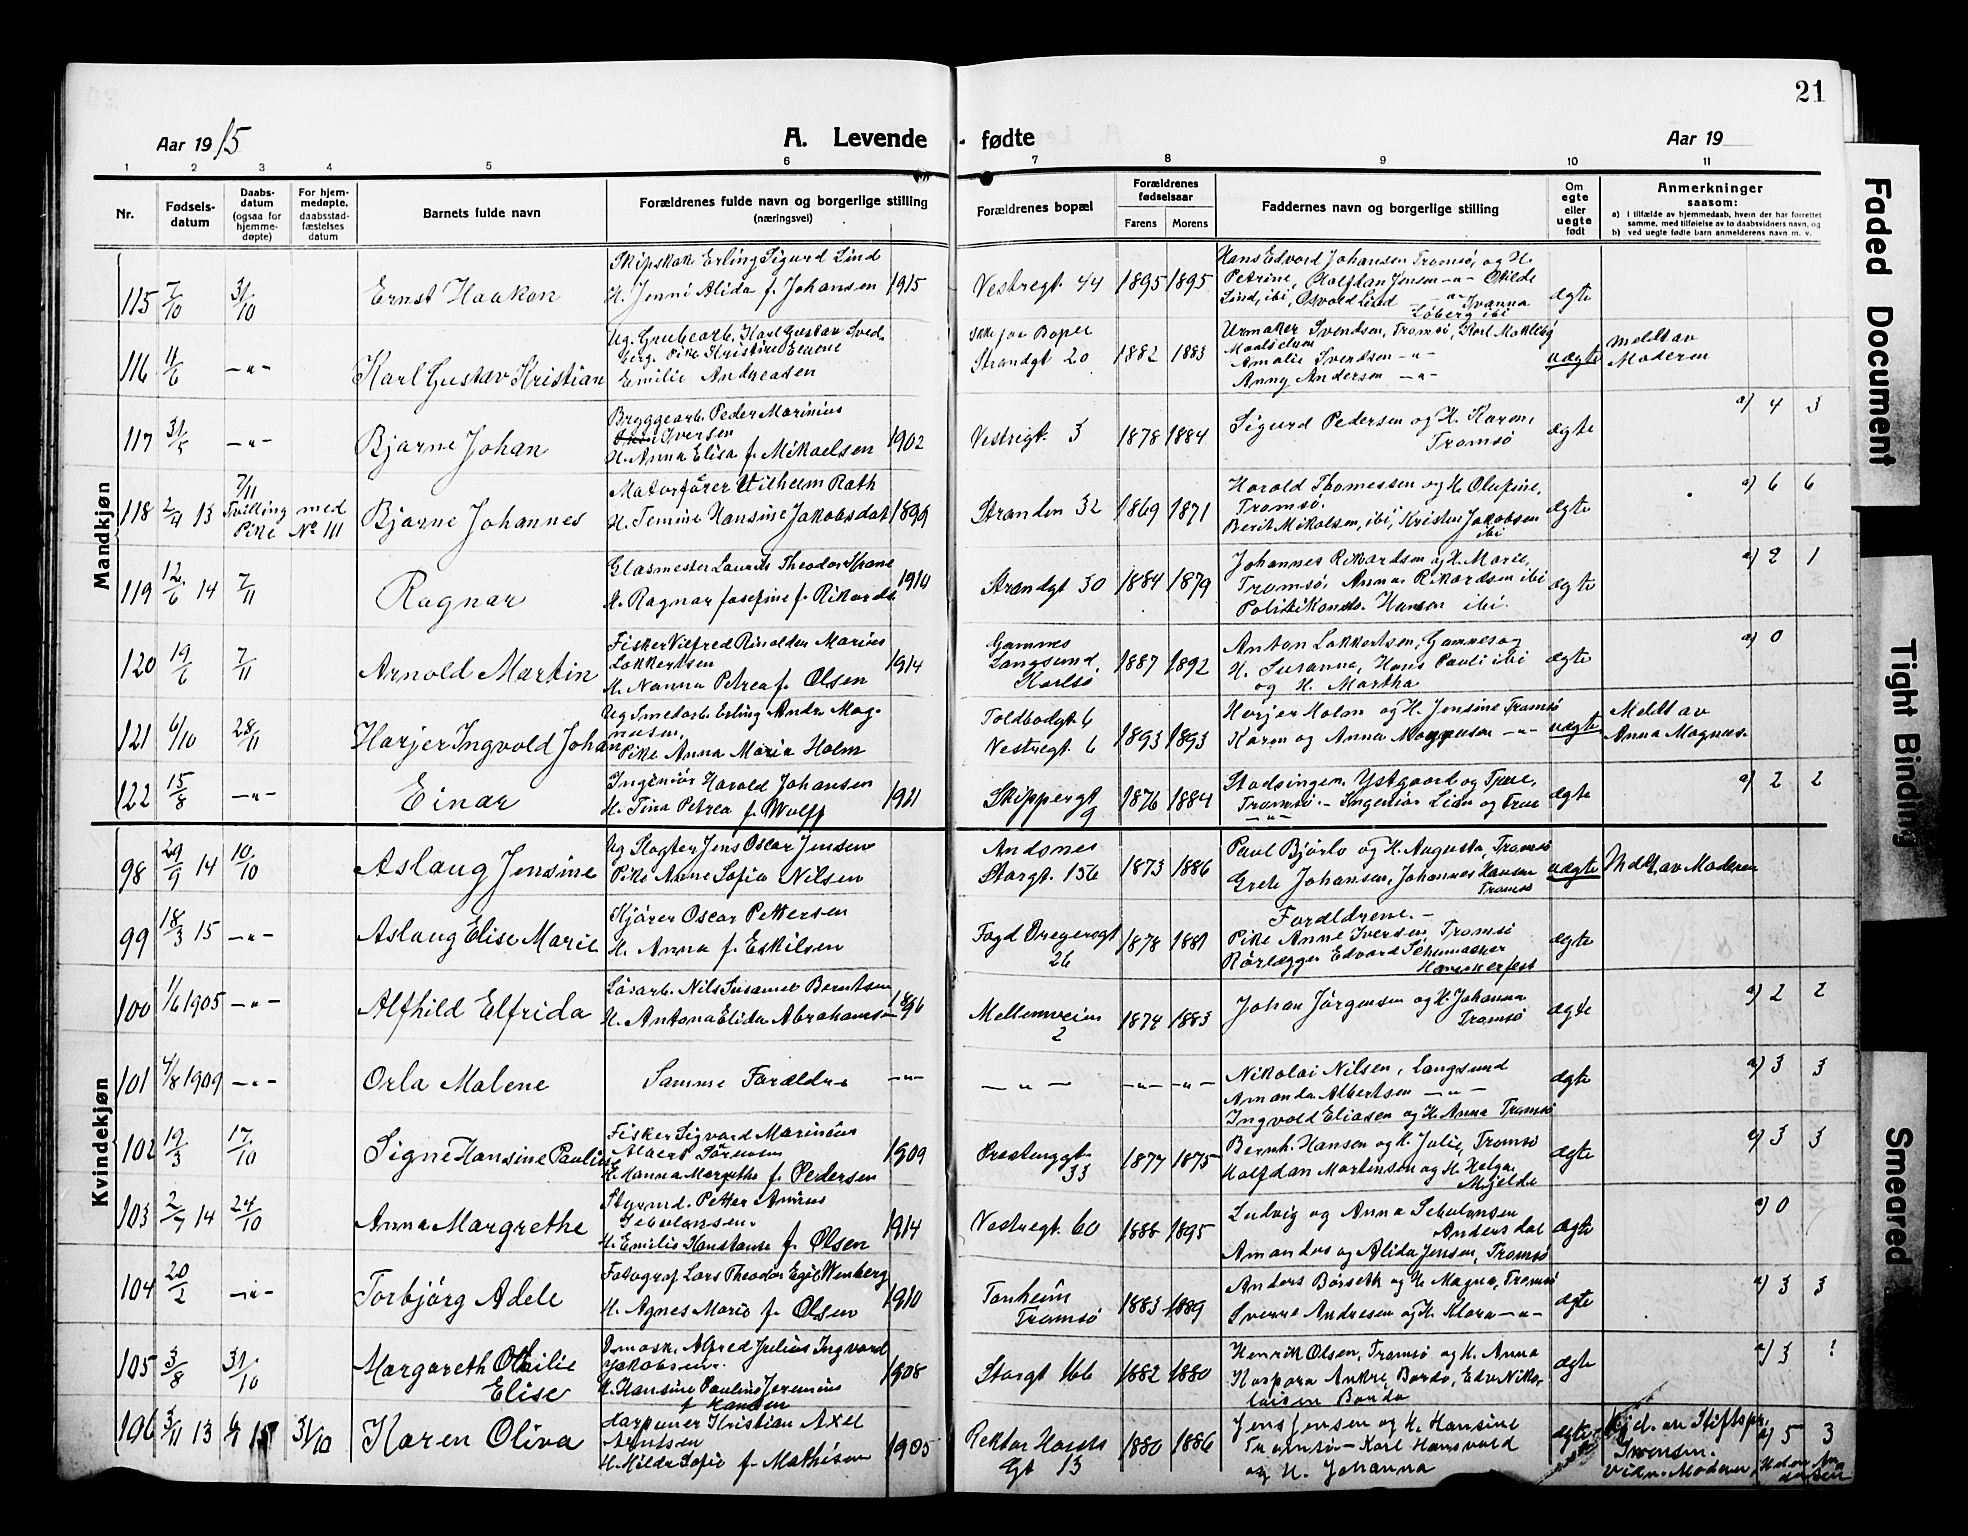 21
Aar 1915
A. Levende
fødte
Aar 19
1 2 3 4 5 6 7 8 9 10 11
Nr.
Fødsels-
datum
Daabs-
datum
(ogsaa for
hjemme-
døpte)
For hjem-
medøpte,
daabsstad-
fæstelses
datum
Barnets fulde navn
Forældrenes fulde navn og borgerlige stilling
(næringsvei)
Forældrenes bopæl
Forældrenes
fødselsaar
Farens Morens
Faddernes navn og borgerlige stilling
Om
egte
eller
uegte
født
Anmerkninger
saasom:
a) i tilfælde av hjemmedaab, hvem der har forrettet
samme, med tilføielse av to daabsvidners navn, og
b) ved uegte fødte barn anmelderens navn m. v.
Mandkjøn
115 7/10 31/10 Ernst Haakon
Erling Sigurd Lind
H. Jenni Alida f. Johansen 1915
Vestregt. 44 1895 1895
Hans Edvard Johansen Tromsø, og H.
Petrine, Halfdan Jensen -"-
Lind, ibi, Osvold Lind
ægte
116 4/6 -"- Karl Gustav Kristian
Ug. Grubearb. Karl Gustav
Emilie Andreasen
Strandgt 20 1882 1883
Urmaker Svendsen, Tromsø, Karl
Amalie Svendsen -"-
Anny Andersen -"-
uægte
Meldt av
Moderen
117 31/5 -"- Bjarne Johan
Bryggearb. Peder Marinius
Iversen
H. Anna Elisa f. Mikaelsen 1902
Vestregt. 3 1878 1884
Sigurd Pedersen og H. Karen,
Tromsø
ægte
a) 4 3
118 2/4 13 7/11
Tvilling med
Pike No 111
Bjarne Johannes
Motorfører Vilhelm Rath
H. Temine Hansine Jakobsdat 1899
Stranden 32 1869 1871
Harald Thomessen og H. Olufine,
Tromsø.
Berit Mikalsen, ibi, Kristen Jakobsen
ibi
ægte
a) 6 6
119 12/6 14 7/11 Ragnar
Glasmester Laurits Theodor Krane
H. Ragnar Josefine f. Rikards. 1910
Strandgt 30 1884 1879
Johannes Rikardsen og H. Marie,
Tromsø, Anna Rikardsen ibi
Politikonst. Hansen ibi.
ægte
a) 2 1
120 19/6 7/11 Arnold Martin
Fisker Vilfred Rinoldus Marius
Lokkertsen
H. Nanna Petrea f. Olsen 1914
Gamnes
Langsund,
Karlsø
1887 1892
Anton Lokkertsen, Gamnes og
H. Susanna, Hans Pauli ibi
og H. Martha
ægte
a) 0
121 6/10 28/11 Harjer Ingvold Johan
Ug Smedarb. Erling Andr. Mag-
nusen,
Pike Anna Maria Holm
Toldbodgt. 6
Vestregt. 6
1893 1893
Herjer Holm og H. Jensine Tromsø
Karen og Anna Magnusen -"-
uægte
Meldt av
Anna Magnus.
122 15/8 -"- Einar
Ingeniør Harald Johansen
H. Tina Petrea f. Wulff 1911
Skippergt
9
1876 1884
Stadsingen. Ystgaard og Frue,
Tromsø. - Ingeniør Lien og Frue
-"-
ægte
a) 2 2
Kvindekjøn
98 29/9 14 10/10 Aslaug Jensine
Ug Slagter Jens Oscar Jensen
Pike Anne Sofia Nilsen
Andsnes
Storgt. 156
1873 1886
Paul Bjørlo og H. Augusta, Tromsø
Grete Johansen, Johannes Hansen
Tromsø
uægte
Meldt av Moderen
99 18/3 15 -"- Aslaug Elise Marie
Kjører Oscar Pettersen
H. Anna f. Eskilsen
Fogd Dregersgt
26
1878 1881
Forældrene. -
Pike Anne Iversen, Tromsø
Rørlægger Edvard Schumacher
Hammerfest
ægte
100 1/6 1905 -"- Alfhild Elfrida
Løsarb. Nils Susamel Berntsen
H. Antona Elida Abrahamsen 1896
Mellemveien
2
1874 1883
Johan Jørgensen og H. Johanna
Tromsø
ægte
a) 2 2
101 4/8 1909 -"- Orla Malene
Samme Forældre -"-
-"- -"- -"-
Nikolai Nilsen, Langsund
Amanda Albertsen -"-
Ingvold Eliasen og H. Anna Tromsø
ægte
a) 3 3
102 19/3 17/10 Signe Hansine Pauline
Fisker Sigvard Marinius
Albert Sørensen
H. Hanna Margrethe f. Pedersen 1909
Prestenggt.
33
1877 1875
Bernh. Hansen og H. Julie, Tromsø
Halfdan Martinsen og H. Helga
Mjelde
ægte
a) 3 3
103 2/7 14 24/10 Anna Margrethe
Styrmd. Petter Amius
Sebulonsen.
H. Emilie Konstanse f. Olsen 1914
Vestregt. 60 1888 1895
Ludvig og Anna Sebulonsen
Andersdal
Amandus og Alida Jensen, Tromsø
ægte
a) 0
104 20/2 -"- Torbjørg Adele
Fotograf Lars Theodor Egil Wenberg
H. Agnes Marie f. Olsen 1910
Tonheim
Tromsø
1883 1889
Anders Børseth og H. Magna, Tromsø
Sverre Andresen og H. Klara -"-
ægte
a) 3 3
105 3/8 31/10 Margareth Otilie
Elise
Alfred Julius Ingvard
Jakobsen.
H. Hansine Pauline Jeremine
f. Hansen
1908
Storgt 166 1882 1880
Henrik Olsen, Tromsø og H. Anna
Kaspara Andre, Bardo, Edv. Niko-
laisen Bardo
ægte
a) 3
106 3/11 13 31/10 Karen Oliva
Harpuner Kristian Axel
Arntsen
H. Hilda Sofie f. Mathisen 1905
Rektor Horsts
Gt 13
1880 1886
Jens Jensen og H. Hansine
Tromsø - Karl Hansvold
og H. Johanna
ægte
Hjd. av Stiftspr.
Svendsen.
Vidn. Moderen,
a) 5 3
Faded Document
Tight Binding
Smeared